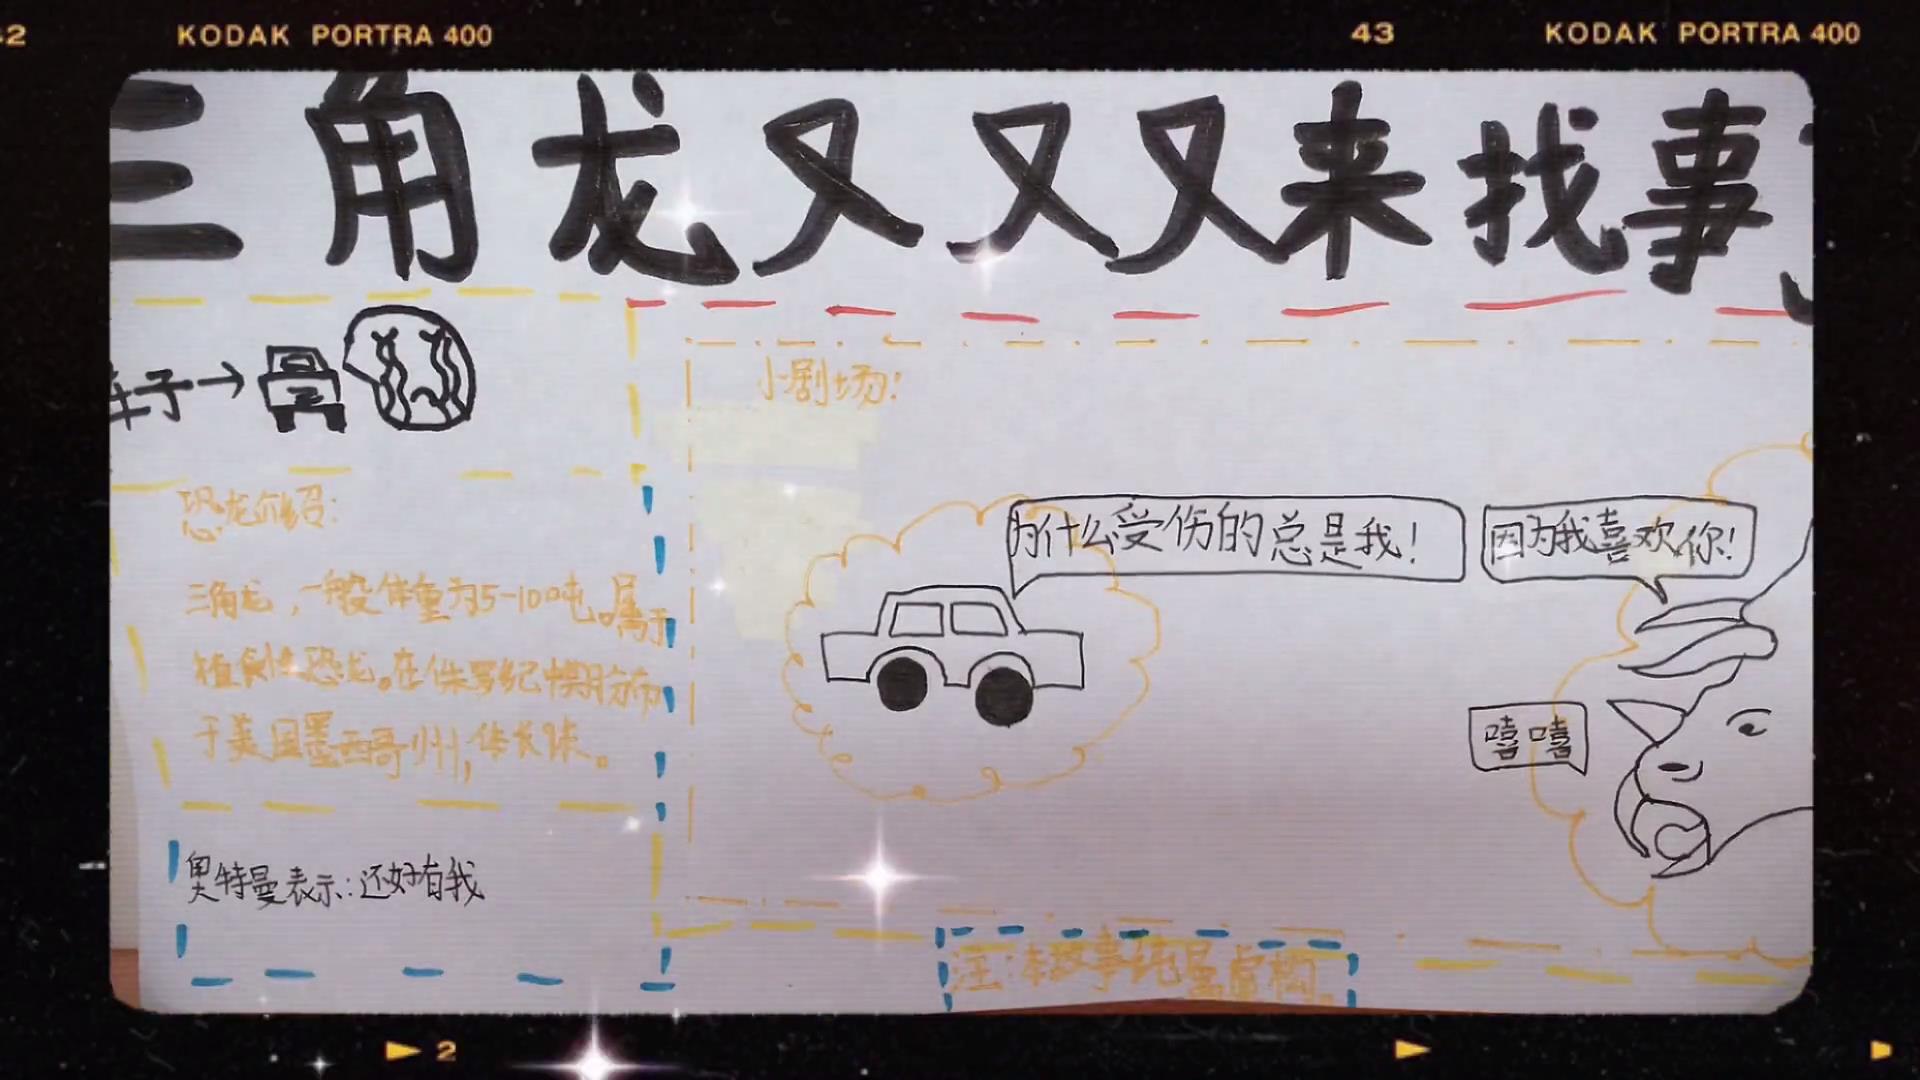 42 KODAK PORTRA 400 43 KODAK PORTRA 400
三角龙又又又来找事
车子→
小剧场：
恐龙介绍：
为什么受伤的总是我！
因为我喜欢你！
三角龙，一般体重为5-10吨。属于
植食性恐龙。在侏罗纪晚期分布
于美国墨西哥州，体长米。
嘻嘻
奥特曼表示：还好有我
注：本故事纯属虚构。
2